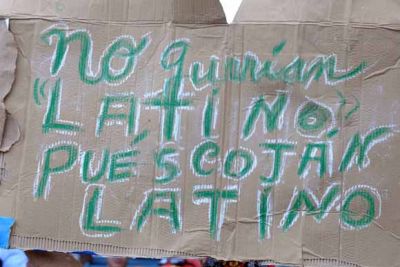 no qurrían
"LATINO"
PUÉSCOJÁN
LATINO